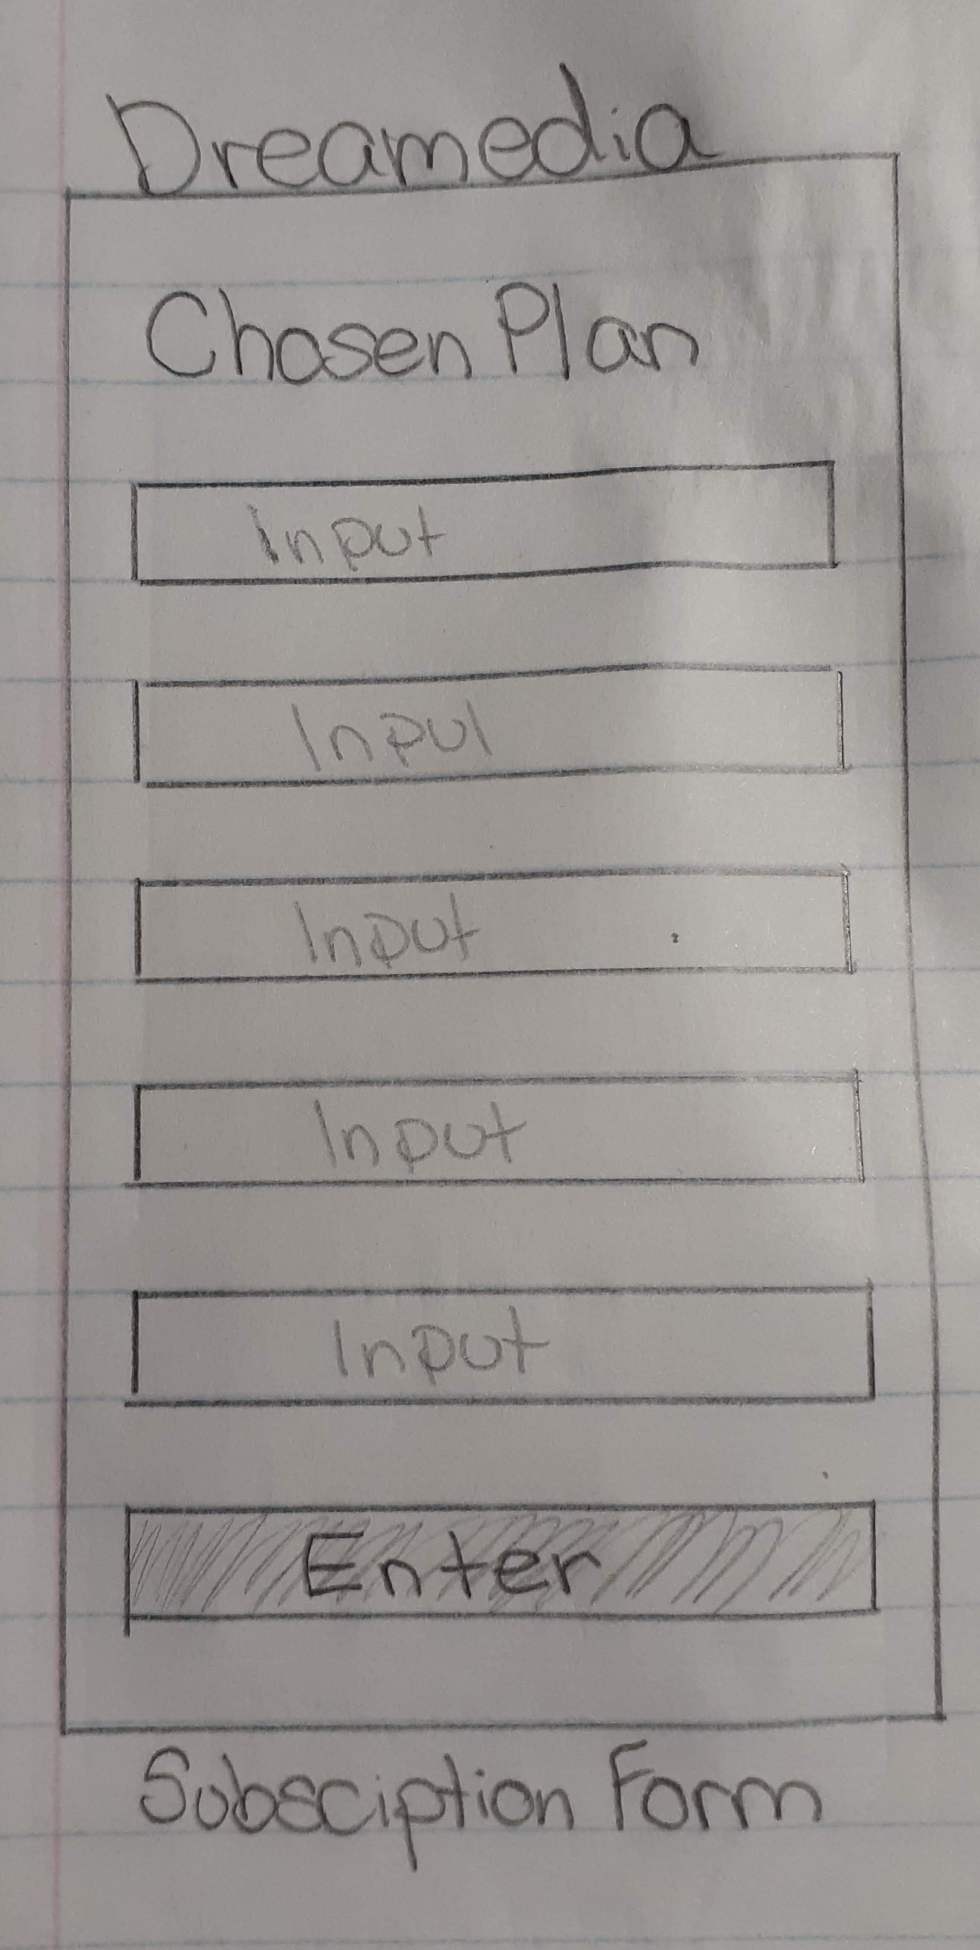 Dreamedia
Chosen Plan
Input
Input
Input
Input
Input
Enter
Subsciption Form